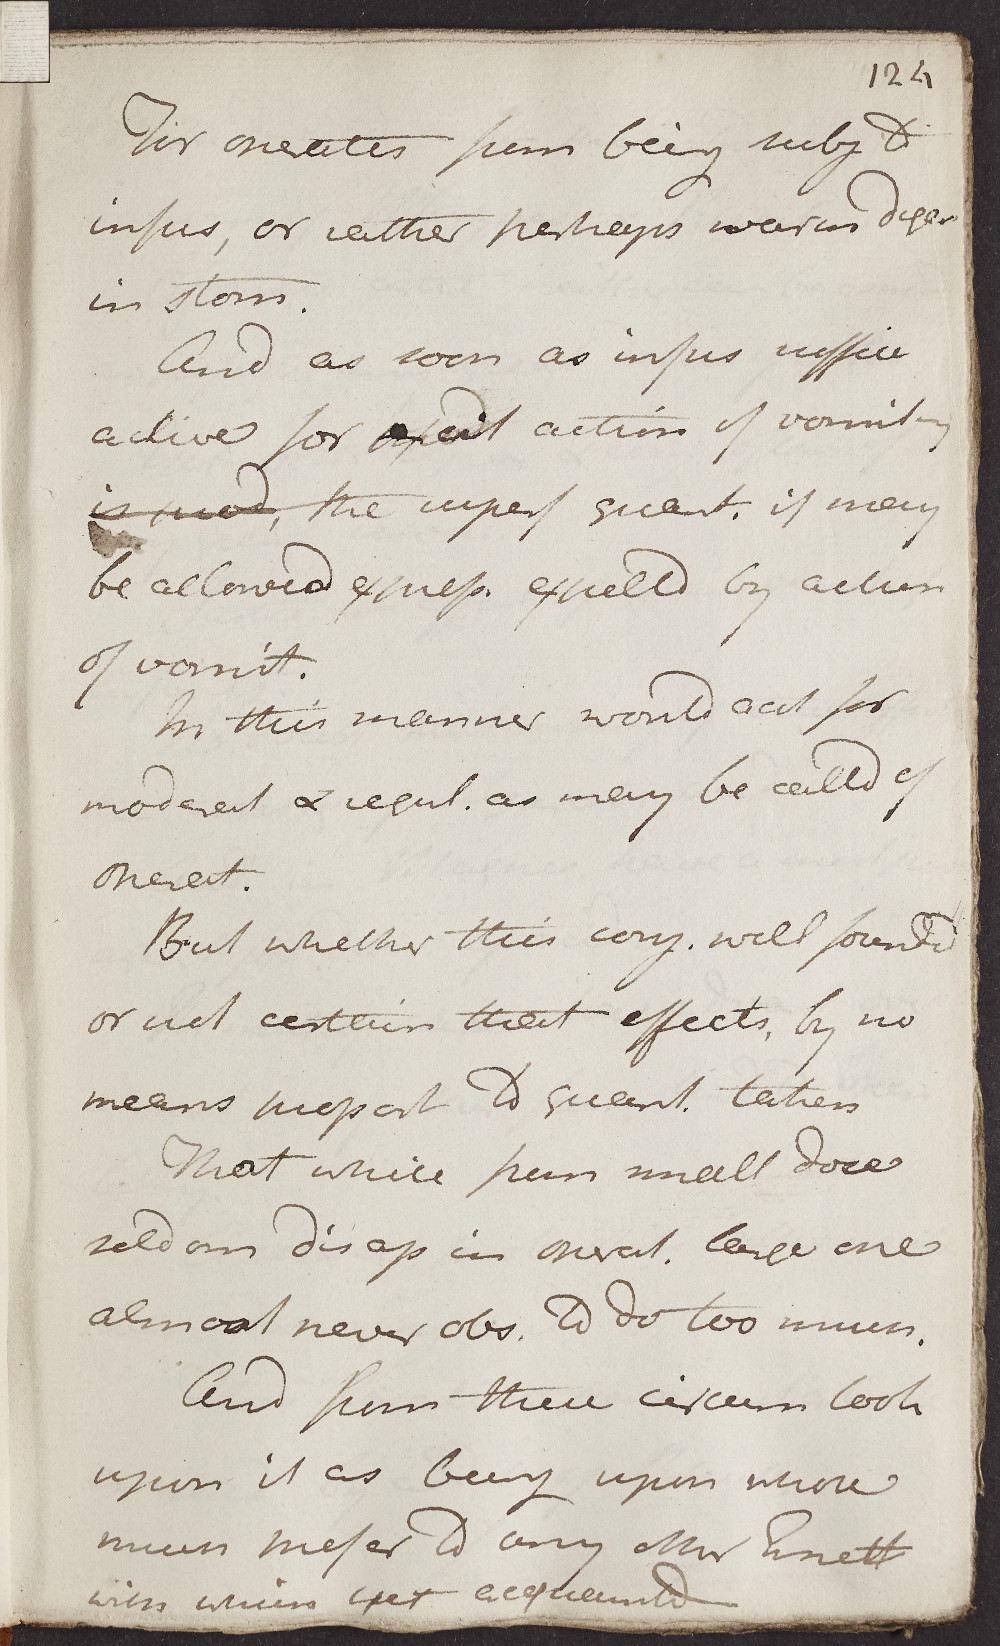 124
For operates from being subj to
infus, or rather perhaps warm diges
in stom.
And as soon as infus suffici
active for excit action of vomiting
is prod, the superf quant. if may
be allowed express. expelld by action
of vomit.
In this manner would act for
moderat & regul. as may be calld of
operat.
But whether this conj. well founded
or not certain that effects, by no
means proport to quant. taken
That while from small dose
seldom disap in operat. large one
almost never obs. to do too much.
And from these circum look
upon it as being upon whole
much prefer to any other Emett
with which yet acquainted